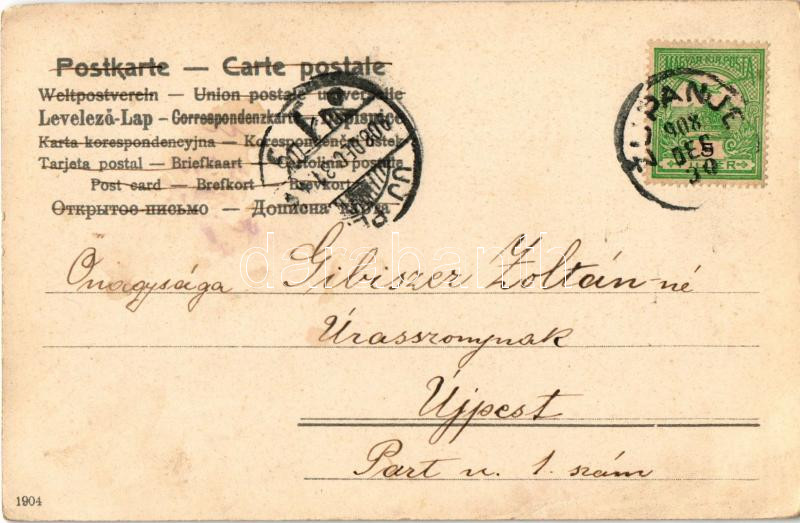 Postkarte — Carte postale
Weltpostverein — Union postale universelle
Levelező-Lap — Correspondenzkarte — Dopisnice
Karta korespondencyjna — Korespondenční lístek
Tarjeta postal — Briefkaart — Cartolina postale
Post card — Brefkort — Brevkort
Открытое письмо — Дописна карта
MAGYAR KIR. POSTA
ŽUPANJE
908
DEC
30
908 DEC 31
ÚJPE
darabanth
Őnagysága Gibiszer Zoltán-né
Úrasszonynak
Újpest
Part u. 1. szám
1904